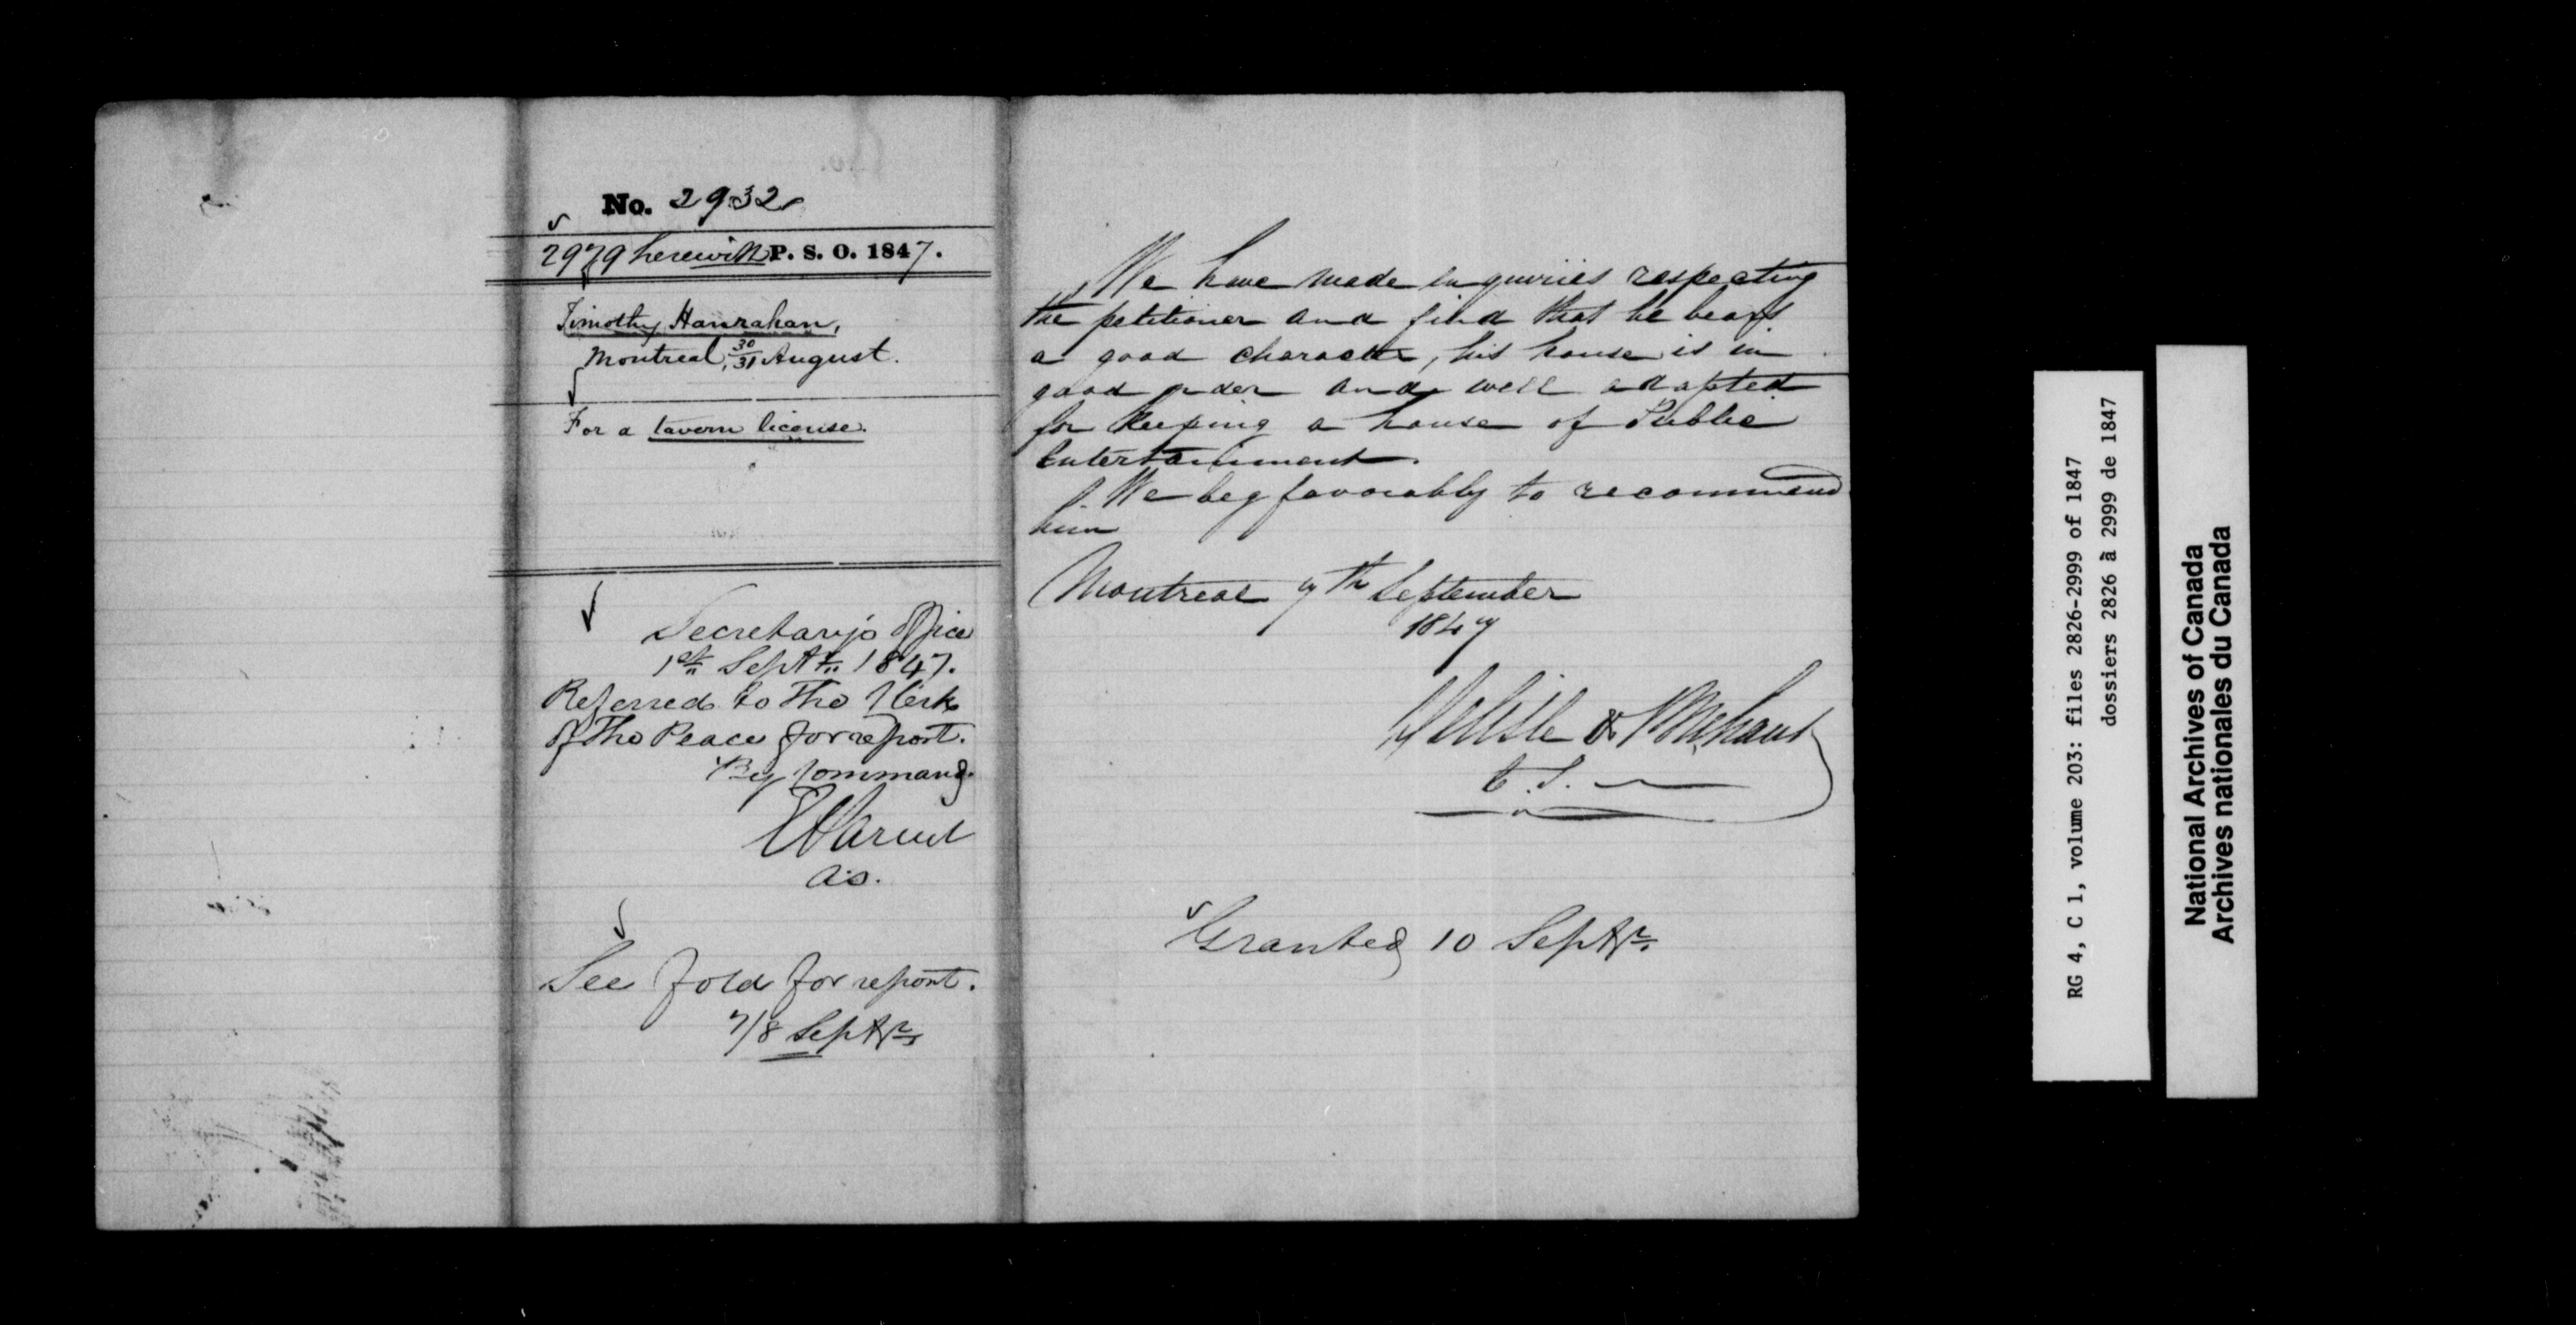 No. 2932
2979 herewith P. S. O. 1847.
Timothy Hanrahan,
Montreal, 30/31 August.
For a tavern license.
Secretary's Office
1st Septr 1847.
Referred to the Clerk
of the Peace for report.
By Command.
E Parent
A.S.
See fold for report.
7/8 Septr
We have made inquiries respecting
the petitioner and find that he bears
a good character, his house is in
good order and well adapted
for keeping a house of Public
Entertainment.
We beg favorably to recommend
him
Montreal 7th September
1847
Delisle & Brehaut
Granted 10 Septr.
RG 4, C 1, volume 203: files 2826-2999 of 1847
dossiers 2826 à 2999 de 1847
National Archives of Canada
Archives nationales du Canada